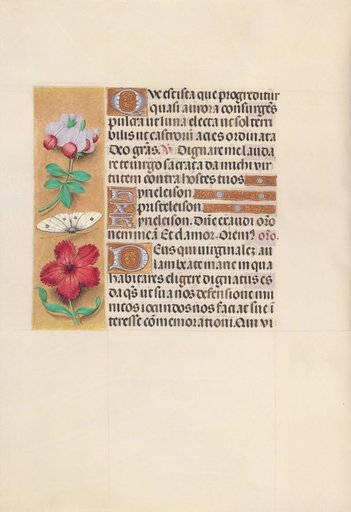 Que est ista que progreditur
quasi aurora consurgēs
pulcra ut luna electa ut sol terri
bilis ut castrorū acies ordinata
Deo grās. V. Dignare me lauda
re te virgo sacrata da michi vir
tutem contra hostes tuos
Kyrieleison
Xpisteleison
Kyrieleison. Dn̄e exaudi orō
nem meā Et clamor. Oremꝰ orō.
Deus qui virginalez au
lam beate marie in qua
habitares eligere dignatus es
da qs̄ ut sua nos defensione mu
nitos iocundos nos faciat sue ī
teresse cōmemorationi. Qui vi